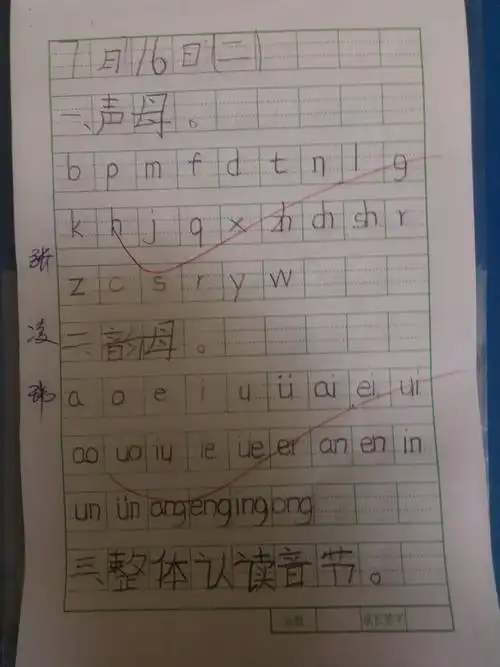 7月16日(二)
一、声母。
b p m f d t n l g
k h j q x zh ch sh r
z c s r y w
二、韵母。
a o e i u ü ai ei ui
ao uo iu ie üe er an en in
un ün ang eng ing ong
三整体认读音节。
张
凌